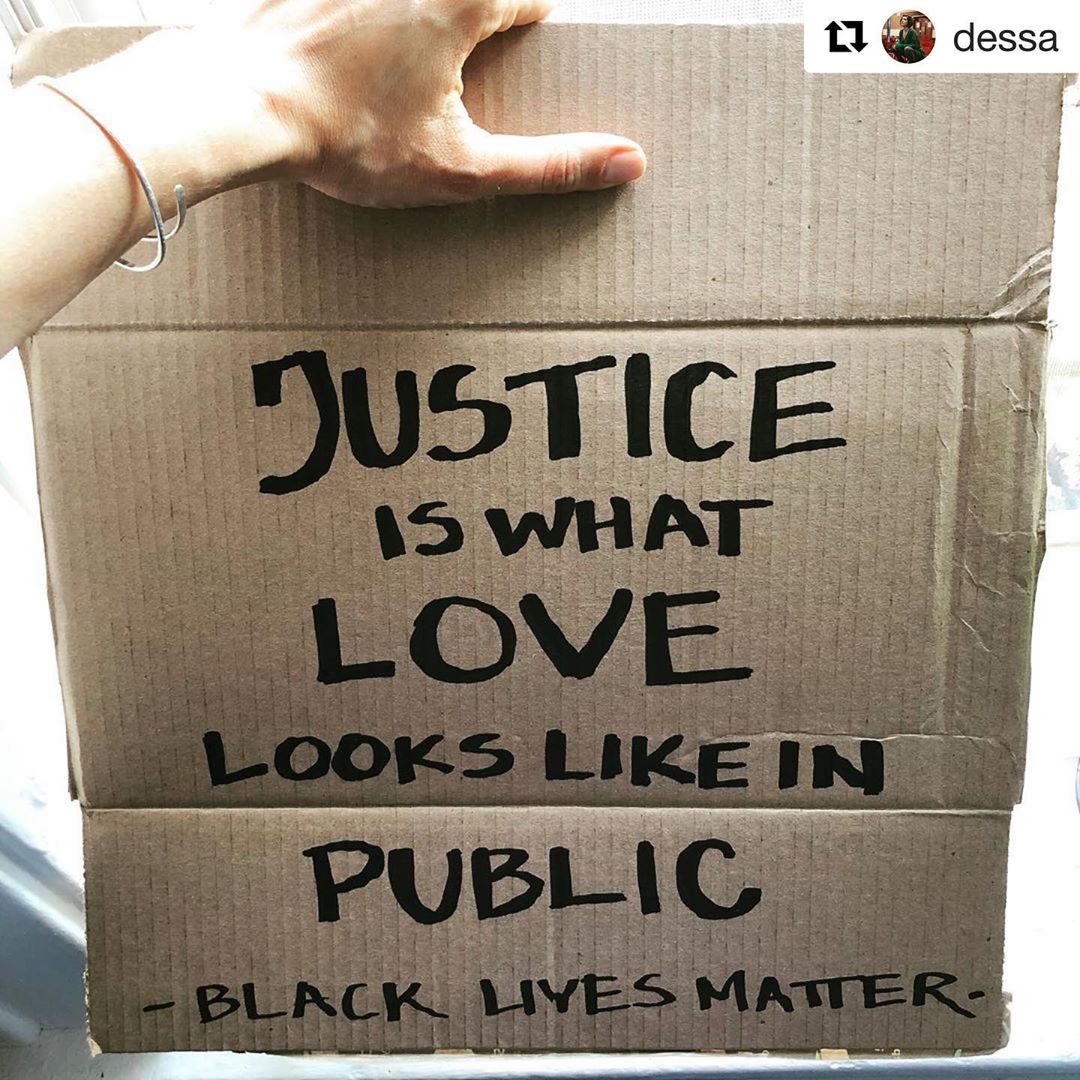 dessa
JUSTICE
IS WHAT
LOVE
LOOKS LIKE IN
PUBLIC
- BLACK LIVES MATTER -